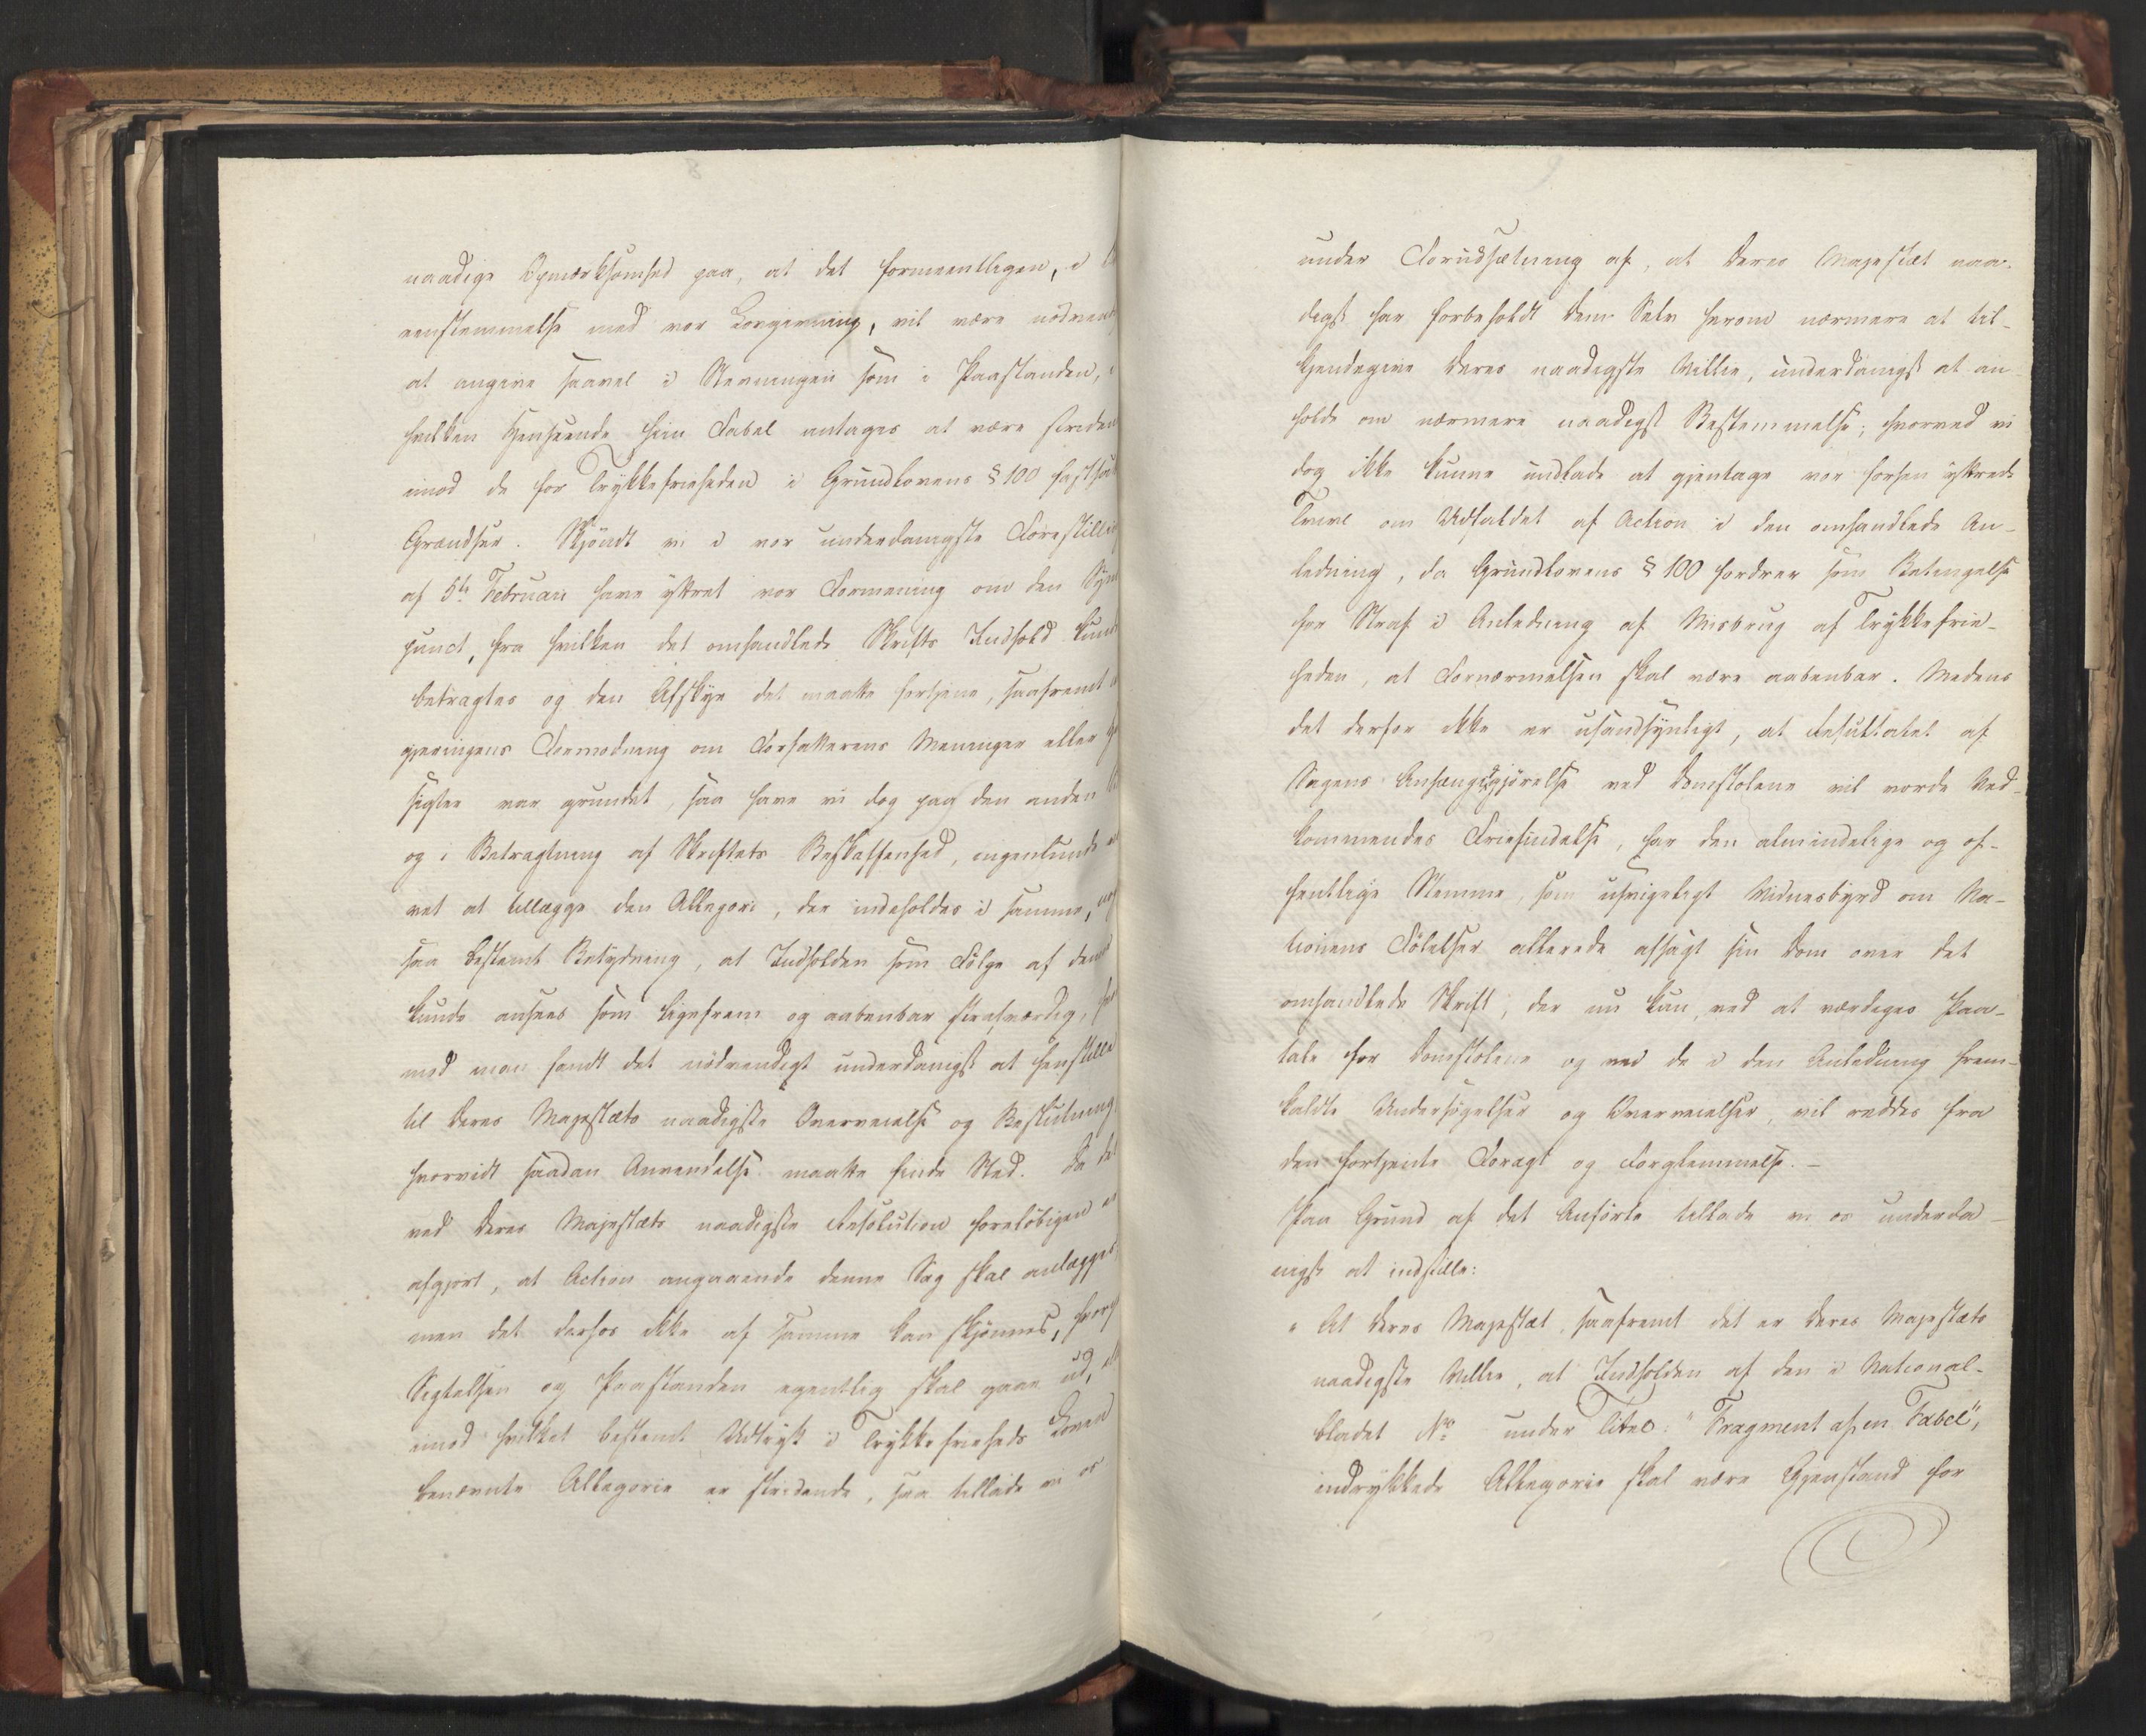 naadige Opmærksomhed paa, at det formeentligen, i
eenstemmelse med vor Lovgivning, vil være nödvend
at angive saavel i Stevningen som i Paastanden,
hvilken Henseende hiin Fabel antages at være striden
imod de for Trykkefriheden i Grundlovens § 100 fastsat
Grændser. Skjöndt vi i vor underdanigste Forestillin
af 5te Februari have yttret vor Formening om den Syns
punct, fra hvilken det omhandlede Skrifts Indhold kund
betragtes og den Afskye det maatte fortjene, saafremt
gjeringens Formodning om Forfatterens Meninger eller
sigter var grundet, saa have vi dog paa den anden
og i Betragtning af Skriftets Beskaffenhed, ingenlunde
vet at tillægge den Allegori, der indeholdes i samme,
saa bestemt Betydning, at Indholden som Fölge af den
kunde ansees som ligefrem og aabenbar strafværdig,
med man fandt det nödvendigt underdanigst at henstille
til Deres Majestæts naadigste Overveielse og Beslutning
hvorvidt saadan Anvendelse maatte finde Sted. Da det
ved Deres Majestæts naadigste Resolution forelöbigen er
afgjort, at Action angaaende denne Sag skal anlægges
men det derhos ikke af samme kan skjönnes, hvorp
Sigtelsen og Paastanden egentlig skal gaae ud,
imod hvilket bestemt Udtryk i Trykkefriheds Loven
benævnte Allegorie er stridende, saa tillade vi os
under Forudsætning af, at Deres Majestæt naa-
digst har forbeholdt Dem Selv herom nærmere at til-
kjendegive Deres naadigste Villie, underdanigst at an-
holde om nærmere naadigst Bestemmelse; hvorved vi
dog ikke kunne undlade at gjentage vor forhen yttrede
Tvivl om Udfaldet af Action i den omhandlede An-
ledning, da Grundlovens § 100 fordrer som Betingelse
for Straf i Anledning af Misbrug af Trykkefrie-
heden, at Fornærmelsen skal være aabenbar. Medens
det derfor ikke er usandsynligt, at Resultatet af
Sagens Anhængiggjörelse ved Domstolene vil vorde Ved-
kommendes Friefindelse, har den almindelige og of-
fentlige Stemme, som usvigeligt Vidnesbyrd om Na-
tionens Fölelser allerede afsagt sin Dom over det
omhandlede Skrift, der nu kun, ved at værdiges Paa-
tale for Domstolene og ved de i den Anledning frem-
kaldte Undersögelser og Overveielser, vil reddes fra
den fortjente Foragt og Forglemmelse. –
Paa Grund af det Anförte tillade vi os underda-
nigst at indstille:
" At Deres Majestæt, saafremt det er Deres Majestæts
naadigste Villie, at Indholden af den i National-
bladet No under Titel: "Fragment af en Fabel",
indrykkede Allegorie skal være Gjenstand for